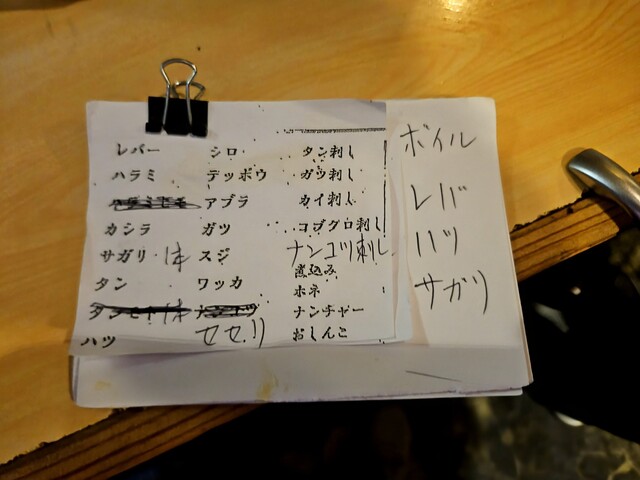 レバー
ハラミ
カシラ
サガリ 1本
タン
1本
ハツ
シロ
テッポウ
アブラ
ガツ
スジ
ワッカ
セセリ
タン刺し
ガツ刺し
カイ刺し
コブクロ刺し
ナンコツ刺し
煮込み
ホネ
ナンチャー
おしんこ
ボイル
レバ
ハツ
サガリ